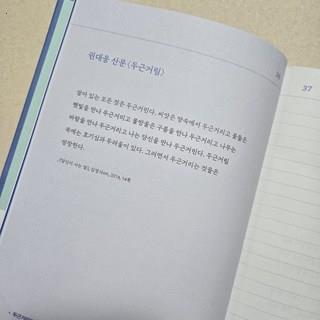 권대웅 산문 〈두근거림〉
살아 있는 모든 것은 두근거린다. 씨앗은 땅속에서 두근거리고 꽃들은
햇빛을 만나 두근거리고 물방울은 구름을 만나 두근거리고 나무는
바람을 만나 두근거리고 나는 당신을 만나 두근거린다. 두근거림
속에는 호기심과 두려움이 있다. 그러면서 두근거리는 것들은
성장한다.
37